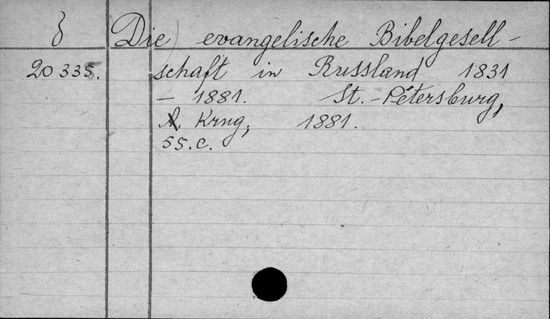 (Die) evangelische Bibelgesell-
20335. schaft in Russland 1831
- 1881. St.-Petersburg,
Krug, 1881.
55.c.